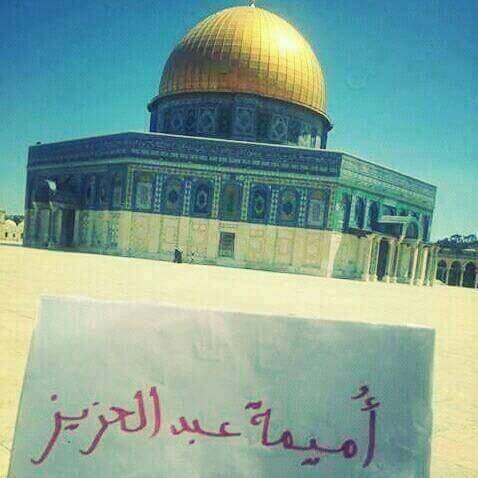 أُميمة عبد العزيز